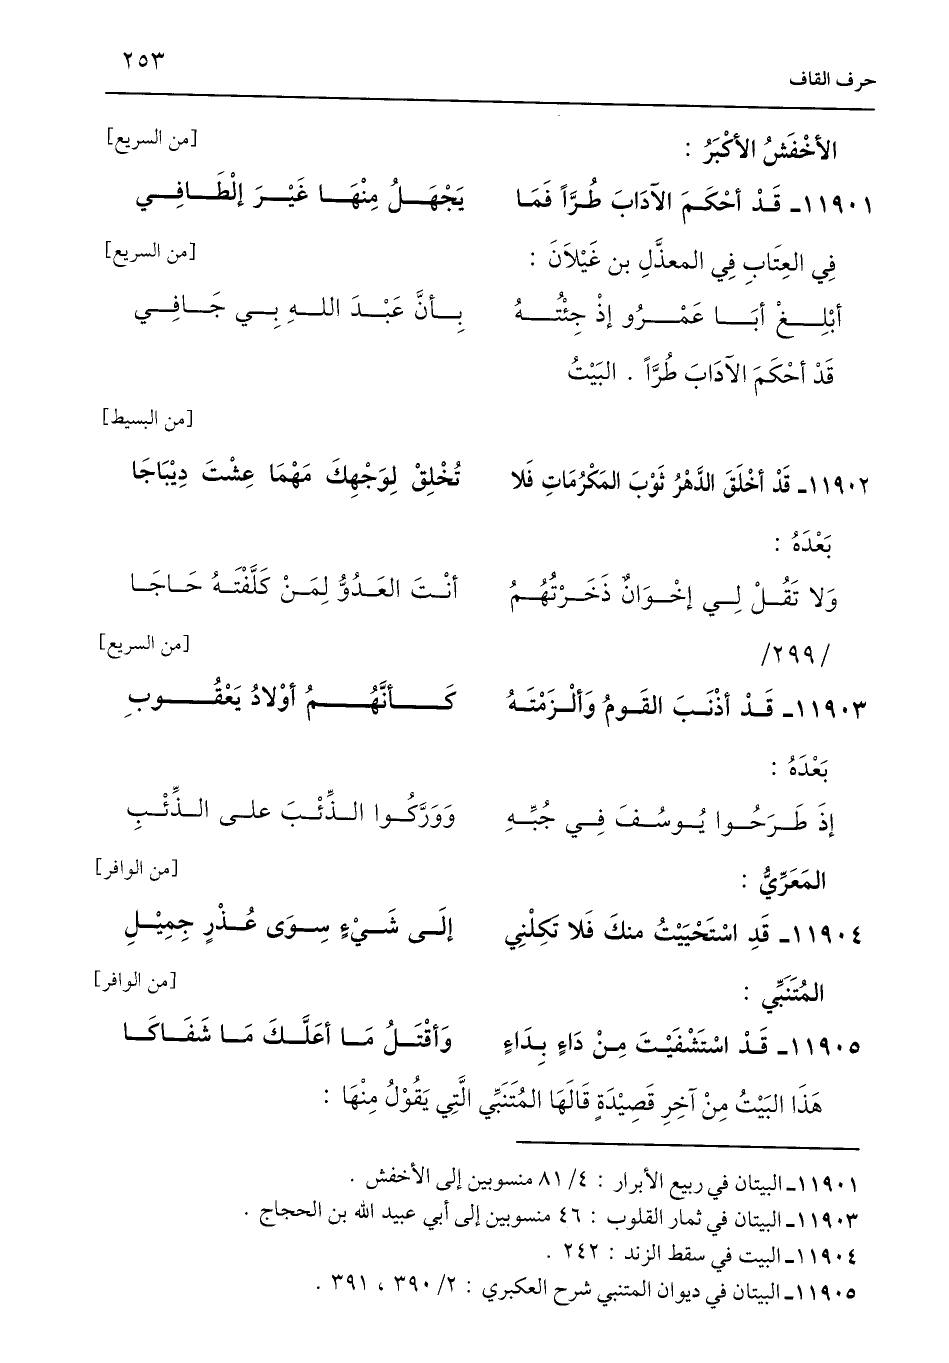 ٢٥٣
حرف القاف
الأَخْفَشُ الأَكْبَرُ : [من السريع]
١١٩٠١ـ قَدْ أحْكَمَ الآدَابَ طُرَّاً فَمَا يَجْهَلُ مِنْهَا غَيْرَ إلْطَافِي
فِي العِتَابِ فِي المعذَّلِ بن غَيْلاَنَ : [من السريع]
أبْلِغْ أبَا عَمْرُو إذْ جِئْتُهُ بِأنَّ عَبْدَ اللهِ بِي جَافِي
قَدْ أحْكَمَ الآدَابَ طُرَّاً . البَيْتُ
[من البسيط]
١١٩٠٢ـ قَدْ أخْلَقَ الدَّهْرُ ثَوْبَ المَكْرُمَاتِ فَلا تُخْلِقْ لِوَجْهِكَ مَهْمَا عِشْتَ دِيْبَاجَا
بَعْدَهُ :
وَلا تَقُلْ لِي إخْوَانٌ ذَخَرْتُهُمُ أنْتَ العَدُوُّ لِمَنْ كَلَّفْتَهُ حَاجَا
/٢٩٩/ [من السريع]
١١٩٠٣ـ قَدْ أذْنَبَ القَومُ وَألْزَمْتَهُ كَأنَّهُمُ أوْلادُ يَعْقُوبِ
بَعْدَهُ :
إذَ طَرَحُوا يُوسُفَ فِي جُبِّهِ وَوَرَّكُوا الذِّئْبَ على الذِّئْبِ
المَعَرِّيُّ : [من الوافر]
١١٩٠٤ـ قَدِ اسْتَحْيَيْتُ منكَ فَلا تَكِلْنِي إلَى شَيْءٍ سِوَى عُذْرٍ جِمِيْلِ
المُتَنَبِّي : [من الوافر]
١١٩٠٥ـ قَدْ اسْتَشْفَيْتَ مِنْ دَاءٍ بِدَاءٍ وَأقْتَلُ مَا أعَلَّكَ مَا شَفَاكَا
هَذَا البَيْتُ مِنْ آخِرِ قَصِيْدَةٍ قَالَهَا المُتَنَبِّي الَّتِي يَقُوْلُ مِنْهَا :
١١٩٠١ـ البيتان في ربيع الأبرار : ٤/ ٨١ منسوبين إلى الأخفش .
١١٩٠٣ـ البيتان في ثمار القلوب : ٤٦ منسوبين إلى أبي عبيد الله بن الحجاج .
١١٩٠٤ـ البيت في سقط الزند : ٢٤٢ .
١١٩٠٥ـ البيتان في ديوان المتنبي شرح العكبري : ٢/ ٣٩٠ ، ٣٩١ .